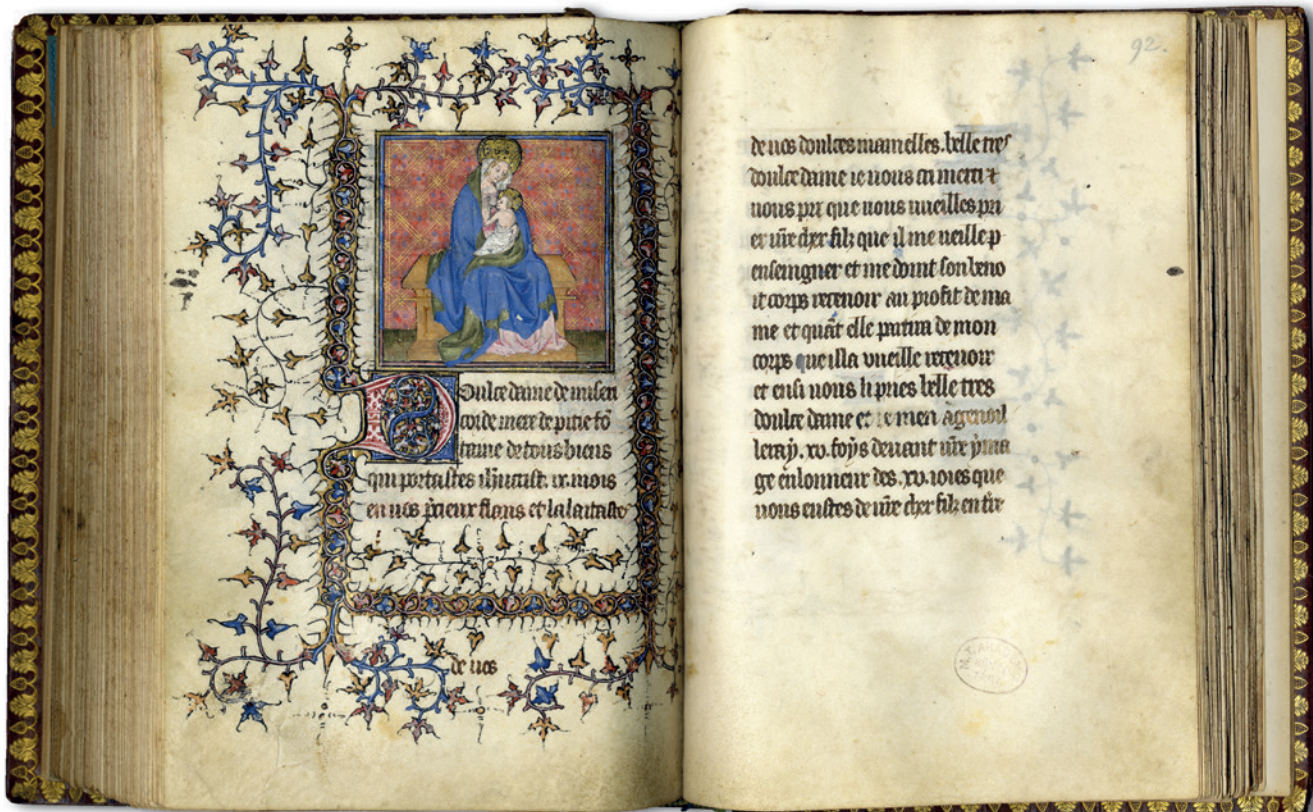 Doulce dame de miseri
corde mere de pitie fō
taine de tous biens
qui portastes ihūcrist. ix. mois
en uos p̄cieux flans et lalaitaste
de uos
92.
de uos doulces mamelles. belle tres
doulce dame ie uous cri merci ⁊
uous pri que uous uueilles pri
er ur̄e cher filz que il me ueille
enseingner et me doint son beno
it corps receuoir au profit de ma
me et quāt elle partira de mon
corps que il la vueille receuoir
et ensi uous li pries belle tres
doulce dame et ie men agenoil
leray. xv. foys deuant ur̄e yma
ge en lonneur des. xv. ioies que
uous eustes de ur̄e cher filz en t̄re